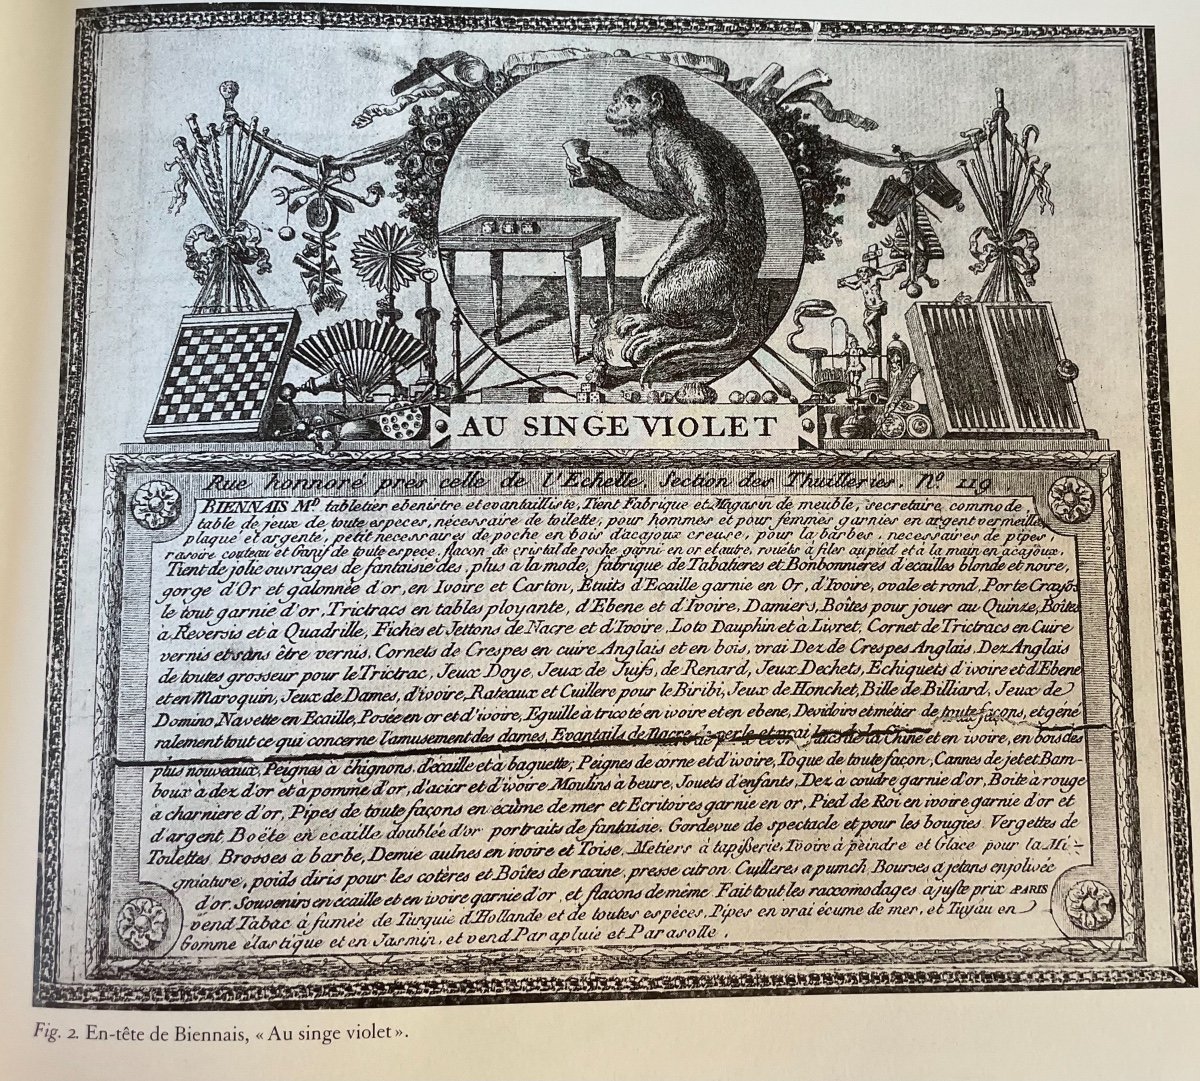 AU SINGE VIOLET
Rue honnoré pres celle de l'Echelle, Section des Thuilleries, Nº 119
BIENNAIS Md. tabletier ebeniste et evantailliste, Tient Fabrique et Magasin de meuble, secretaire, commode,
table de jeux de toute especes, necessaire de toilette, pour hommes et pour femmes garnies en argent vermeille,
plaqué et argente, petit necessaires de poche en bois d'acajoux creuse, pour la barbes, necessaires de pipes,
rasoire couteau et Canif de toute espece, flacon de cristal de roche garni en or et autre, rouets à filer au pied et à la main en acajoux,
Tient de jolie ouvrages de fantaisie des, plus à la mode, fabrique de Tabatieres et Bonbonnieres d'ecailles blonde et noire,
gorge d'Or et galonnée d'or, en Ivoire et Carton, Etuits d'Ecaille garnie en Or, d'Ivoire, ovale et rond, Porte Crayons
le tout garnie d'or, Trictracs en tables ployante, d'Ebene et d'Ivoire, Damiers, Boîtes pour jouer au Quinze, Boîtes
à Reversis et à Quadrille, Fiches et Jettons de Nacre et d'Ivoire, Loto Dauphin et à Livret, Cornet de Trictracs en Cuire
vernis et sans être vernis, Cornets de Crespes en cuire Anglais et en bois, vrai Dez de Crespes Anglais, Dez Anglais
de toutes grosseur pour le Trictrac, Jeux Doye, Jeux de Juifs, de Renard, Jeux Dechets, Echiquets d'ivoire et d'Ebene
et en Maroquin, Jeux de Dames, d'ivoire, Rateaux et Cuillere pour le Biribi, Jeux de Honchet, Bille de Billiard, Jeux de
Domino, Navette en Ecaille, Posée en or et d'ivoire, Eguille à tricoté en ivoire et en ebene, Devidoirs et métier de toute façons, et géné
ralement tout ce qui concerne l'amusement des dames, Evantails de Nacre perle et vrai de la Chine et en ivoire, en bois des
plus nouveaux, Peignes à chignons d'écaille et à baguette, Peignes de corne et d'ivoire, Toque de toute façon, Cannes de jet et Bam-
boux a dez d'or et a pomme d'or, d'acier et d'ivoire Moulins a beure, Jouets d'enfants, Dez a coudre garnie d'or, Boite à rouge
à charniere d'or, Pipes de toute façons en écume de mer et Ecritoires garnie en or, Pied de Roi en ivoire garnie d'or et
d'argent, Boëte en ecaille doublée d'or portraits de fantaisie, Gardevue de spectacle et pour les bougies Vergettes de
Toilettes, Brosses a barbe, Demie aulnes en ivoire et Toise, Metiers à tapisserie, Ivoire à peindre et Glace pour la Mi-
gniature, poids diris pour les cotères et Boites de racine, presse citron Cuilleres a pumch Bourses a jetans enjolivée
d'or Souvenirs en écaille et en ivoire garnie d'or et flacons de même Fait tout les raccomodages a juste prix A PARIS
vend Tabac à fumée de Turquie d'Hollande et de toutes especes, Pipes en vrai écume de mer, et Tuyau en
Gomme élastique et en Jasmin, et vend Parapluie et Parasolle.
Fig. 2. En-tête de Biennais, « Au singe violet ».